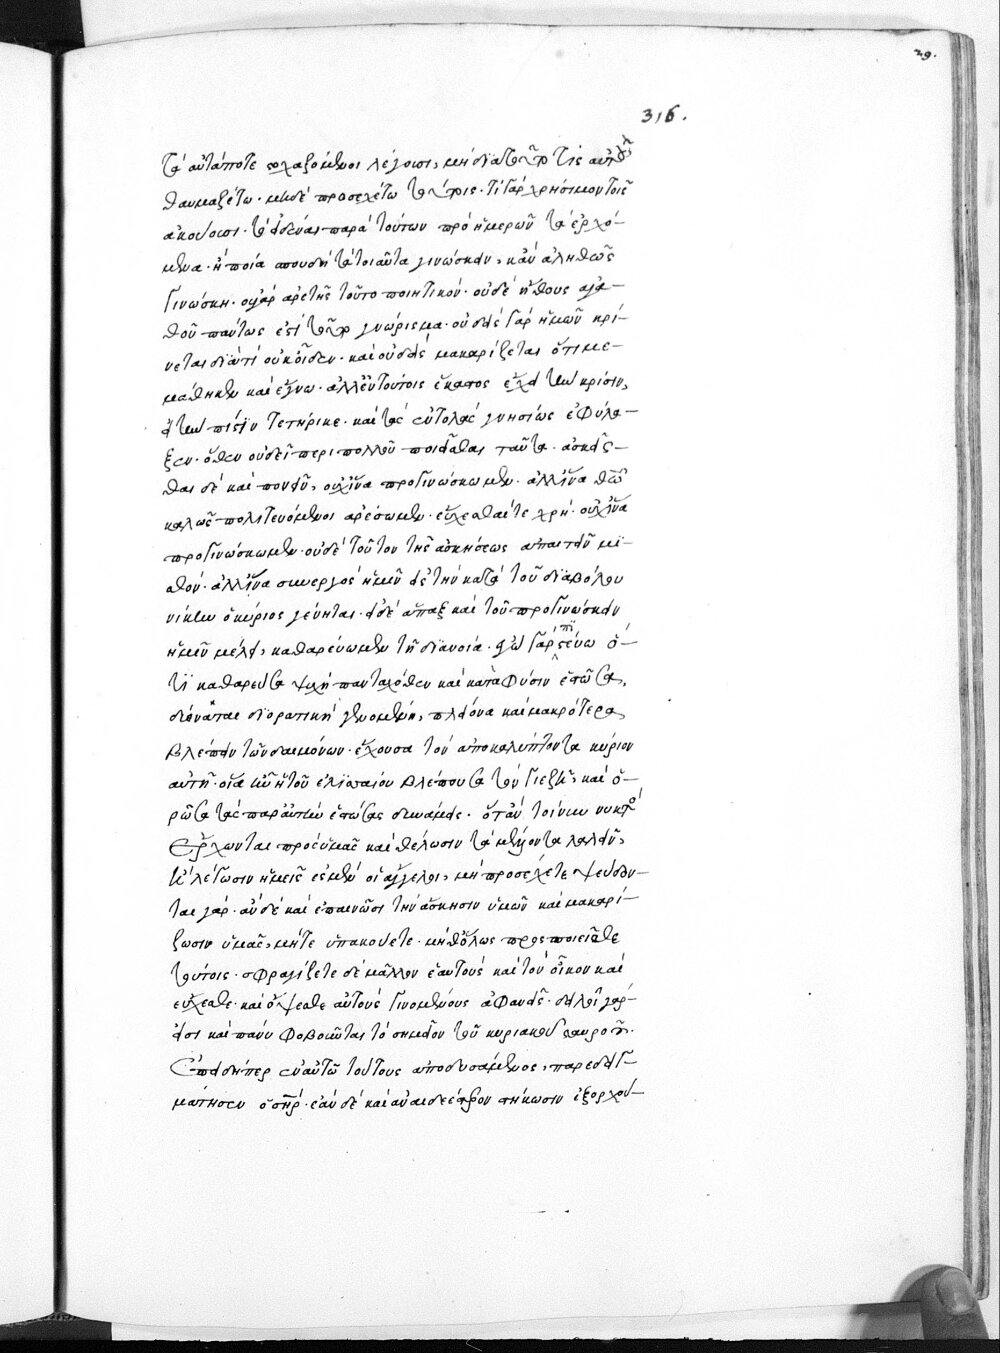 29.
316.
τὰ αὐτά ποτε στοχαζόμενοι λέγωσι, μὴ διὰ τοῦτο τὶς αὐτοὺς
θαυμαζέτω· μηδὲ προσεχέτω τούτοις· τί γὰρ χρήσιμον τοῖς
ἀκούουσι· τὸ εἰδέναι παρὰ τούτων πρὸ ἡμερῶν τὰ ἐρχό-
μενα· ἢ ποία σπουδὴ τὰ τοιαῦτα γινώσκειν, κἂν ἀληθῶς
γινώσκη· οὐ γὰρ ἀρετῆς τοῦτο ποιητικόν· οὐδὲ ἤθους ἀγα-
θοῦ πάντως ἐστὶ τοῦτο γνώρισμα· οὐδεὶς γὰρ ἡμῶν κρί-
νεται διατί οὐκ οἶδεν· καὶ οὐδεὶς μακαρίζεται ὅτι με-
μάθηκεν καὶ ἔγνω· ἀλλ' ἐν τούτοις ἕκαστος ἔχει τὴν κρίσιν,
εἰ τὴν πίστιν τετήρικε· καὶ τὰς ἐντολὰς γνησίως ἐφύλα-
ξεν· ὅθεν οὐ δεῖ περὶ πολλοῦ ποιεῖσθαι ταῦτα· ἀσκεῖσ-
θαι δὲ καὶ πονεῖν, οὐχ ἵνα προγινώσκωμεν· ἀλλ' ἵνα θεῷ
καλῶς πολιτευόμενοι ἀρέσωμεν· εὔχεσθαί τε χρή· οὐχ ἵνα
προγινώσκωμεν· οὐδὲ τοῦτον τῆς ἀσκήσεως ἀπαιτεῖν μι-
σθόν· ἀλλ' ἵνα συνεργὸς ἡμῖν εἰς τὴν κατὰ τοῦ διαβόλου
νίκην ὁ κύριος γένηται· εἰ δὲ ἅπαξ καὶ τοῦ προγινώσκειν
ἡμῖν μέλει, καθαρεύωμεν τῇ διανοία· ἐγὼ γὰρ πιστεύω ὅ-
τι καθαρεύσα ψυχὴ πανταχόθεν καὶ κατὰ φύσιν ἑστῶσα,
δύναται διορατικὴ γενομένη, πλείονα καὶ μακρότερα
βλέπειν τῶν δαιμόνων· ἔχουσα τὸν ἀποκαλύπτοντα κύριον
αὐτῇ· οἵα ἦν ἡ τοῦ ἐλισσαίου βλέπουσα τὸν γιεζῆ, καὶ ὁ-
ρῶσα τὰς παρ' αὐτὴν ἑστώσας δυνάμεις· ὅτὰν τοίνυν νυκτὸς
ἔρχωνται πρὸς ὑμᾶς καὶ θέλωσιν τὰ μέλλοντα λαλεῖν,
ἢ λέγωσιν ἡμεῖς ἐσμὲν οἱ ἄγγελοι, μὴ προσέχετε, ψεύδον-
ται γάρ· ἂν δὲ καὶ ἐπαινῶσι τὴν ἄσκησιν ὑμῶν καὶ μακαρί-
ζωσιν ὑμᾶς, μήτε ὑπακούετε· μήθ' ὅλως προσποιεῖσθε
τούτοις· σφραγίζετε δὲ μᾶλλον ἑαυτοὺς καὶ τὸν οἶκον καὶ
εὔχεσθε· καὶ ὄψεσθε αὐτοὺς γινομένους ἀφανεῖς· δειλοὶ γάρ-
εἰσι καὶ πάνυ φοβοῦνται τὸ σημεῖον τοῦ κυριακοῦ σταυροῦ·
ἐπειδήπερ ἐν αὐτῷ τούτους ἀποδυσάμενος, παρεδειγ-
μάτησεν ὁ σωτήρ· ἐὰν δὲ καὶ ἀναιδέστερον στήκωσιν ἐξορχού-